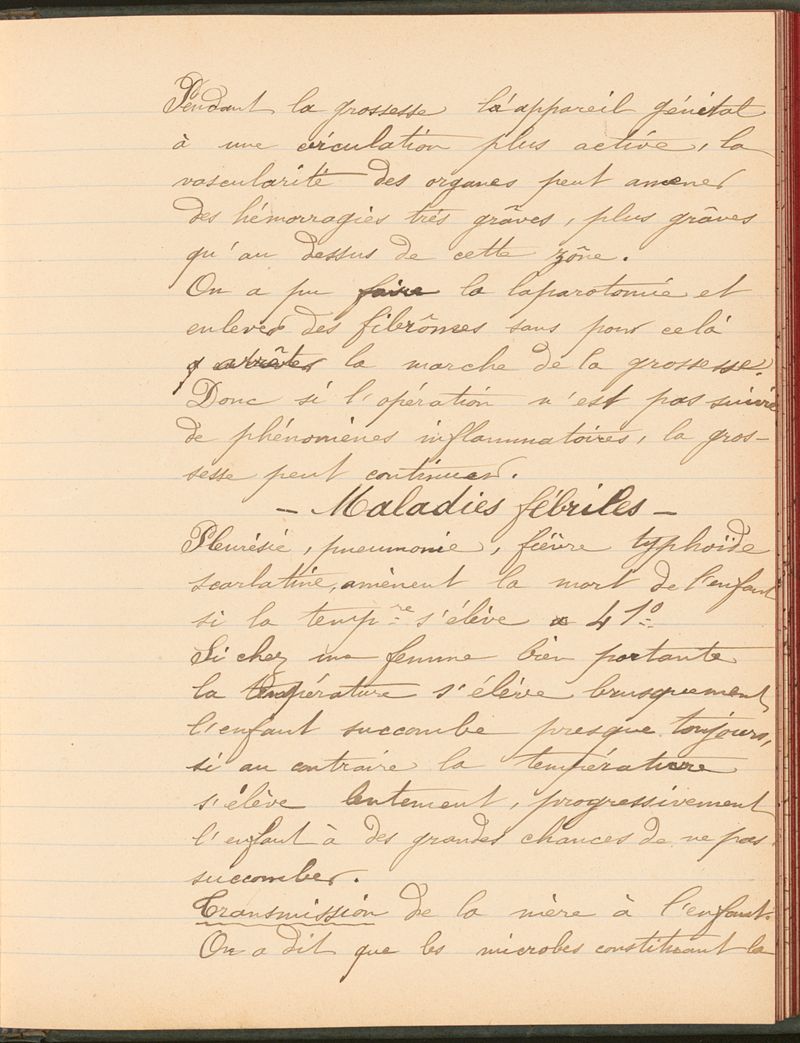 Pendant la grossesse la'appareil génital
à une circulation plus active, la
vascularité des organes peut amener
des hémorragies très grâves, plus grâves
qu'au dessus de cette zône.
On a pu faire la laparotomie et
enlever des fibrômes sans pour celà
arrêter la marche de la grossesse.
Donc si l'opération n'est pas suivie
de phénomènes inflammatoires, la gros-
sesse peut continuer.
- Maladies fébriles -
Pleurésie, pneumonie, fièvre typhoïde
scarlatine, amènent la mort de l'enfant
si la temp.re s'élève a 41°
Si chez une femme bien portante
la température s'élève brusquement
l'enfant succombe presque toujours,
si au contraire la température
s'élève lentement, progressivement
l'enfant à des grandes chances de ne pas
succomber.
Transmission de la mère à l'enfant.
On a dit que les microbes constituant la